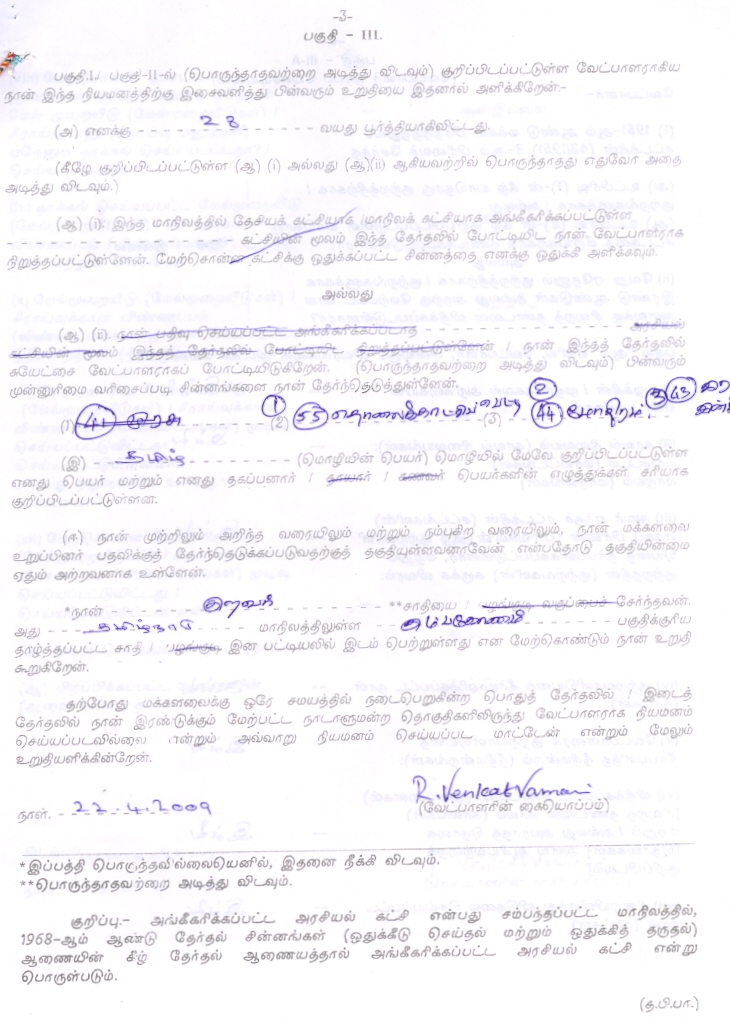 -3-
பகுதி - III.
பகுதி-I / பகுதி-II-ல் (பொருந்தாதவற்றை அடித்து விடவும்) குறிப்பிடப்பட்டுள்ள வேட்பாளராகிய
நான் இந்த நியமனத்திற்கு இசைவளித்து பின்வரும் உறுதியை இதனால் அளிக்கிறேன்:-
(அ) எனக்கு - - - - - - - - - - - - - - - வயது பூர்த்தியாகிவிட்டது.
(கீழே குறிப்பிடப்பட்டுள்ள (ஆ) (i) அல்லது (ஆ)(ii) ஆகியவற்றில் பொருந்தாதது எதுவோ அதை
அடித்து விடவும்.)
(ஆ) (i) இந்த மாநிலத்தில் தேசியக் கட்சியாக /மாநிலக் கட்சியாக அங்கீகரிக்கப்பட்டுள்ள
- - - - - - - - - - - - - - - - - கட்சியின் மூலம் இந்த தேர்தலில் போட்டியிட நான் வேட்பாளராக
நிறுத்தப்பட்டுள்ளேன். மேற்சொன்ன கட்சிக்கு ஒதுக்கப்பட்ட சின்னத்தை எனக்கு ஒதுக்கி அளிக்கவும்.
அல்லது
(ஆ) (ii) நான் பதிவு செய்யப்பட்ட அங்கீகரிக்கப்படாத - - - - - - - - - - - - - - - அரசியல்
கட்சியின் மூலம் இந்தத் தேர்தலில் போட்டியிட நிறுத்தப்பட்டுள்ளேன் / நான் இந்தத் தேர்தலில்
சுயேட்சை வேட்பாளராகப் போட்டியிடுகிறேன். (பொருந்தாதவற்றை அடித்து விடவும்) பின்வரும்
முன்னுரிமை வரிசைப்படி சின்னங்களை நான் தேர்ந்தெடுத்துள்ளேன்.
1 2
(1) 41 (2) 55 தொலைக்காட்சிப் பெட்டி (3) 44 மோதிரம். 3 43
(இ) - தமிழ் - - - - - - - - - - (மொழியின் பெயர்) மொழியில் மேலே குறிப்பிடப்பட்டுள்ள
எனது பெயர் மற்றும் எனது தகப்பனார் / தாயார் / கணவர் பெயர்களின் எழுத்துக்கள் சரியாக
குறிப்பிடப்பட்டுள்ளன.
(ஈ) நான் முற்றிலும் அறிந்த வரையிலும் மற்றும் நம்புகிற வரையிலும், நான் மக்களவை
உறுப்பினர் பதவிக்குத் தேர்ந்தெடுக்கப்படுவதற்குத் தகுதியுள்ளவனாவேன் என்பதோடு தகுதியின்மை
ஏதும் அற்றவனாக உள்ளேன்.
*நான் - - - - - - - - - - - - - - - **சாதியை / பழங்குடி வகுப்பைச் சேர்ந்தவன்.
அது - தமிழ்நாடு - - - - மாநிலத்திலுள்ள - - - - - - - - பகுதிக்குரிய
தாழ்த்தப்பட்ட சாதி / பழங்குடி இன பட்டியலில் இடம் பெற்றுள்ளது என மேற்கொண்டும் நான் உறுதி
கூறுகிறேன்.
தற்போது மக்களவைக்கு ஒரே சமயத்தில் நடைபெறுகின்ற பொதுத் தேர்தலில் / இடைத்
தேர்தலில் நான் இரண்டுக்கும் மேற்பட்ட நாடாளுமன்ற தொகுதிகளிலிருந்து வேட்பாளராக நியமனம்
செய்யப்படவில்லை என்றும் அவ்வாறு நியமனம் செய்யப்பட மாட்டேன் என்றும் மேலும்
உறுதியளிக்கின்றேன்.
R. Venkatraman
நாள். - 22.4.2009 (வேட்பாளரின் கையொப்பம்)
*இப்பத்தி பொருந்தவில்லையெனில், இதனை நீக்கி விடவும்.
**பொருந்தாதவற்றை அடித்து விடவும்.
குறிப்பு.- அங்கீகரிக்கப்பட்ட அரசியல் கட்சி என்பது சம்பந்தப்பட்ட மாநிலத்தில்,
1968-ஆம் ஆண்டு தேர்தல் சின்னங்கள் (ஒதுக்கீடு செய்தல் மற்றும் ஒதுக்கித் தருதல்)
ஆணையின் கீழ் தேர்தல் ஆணையத்தால் அங்கீகரிக்கப்பட்ட அரசியல் கட்சி என்று
பொருள்படும்.
(த.பி.பா.)